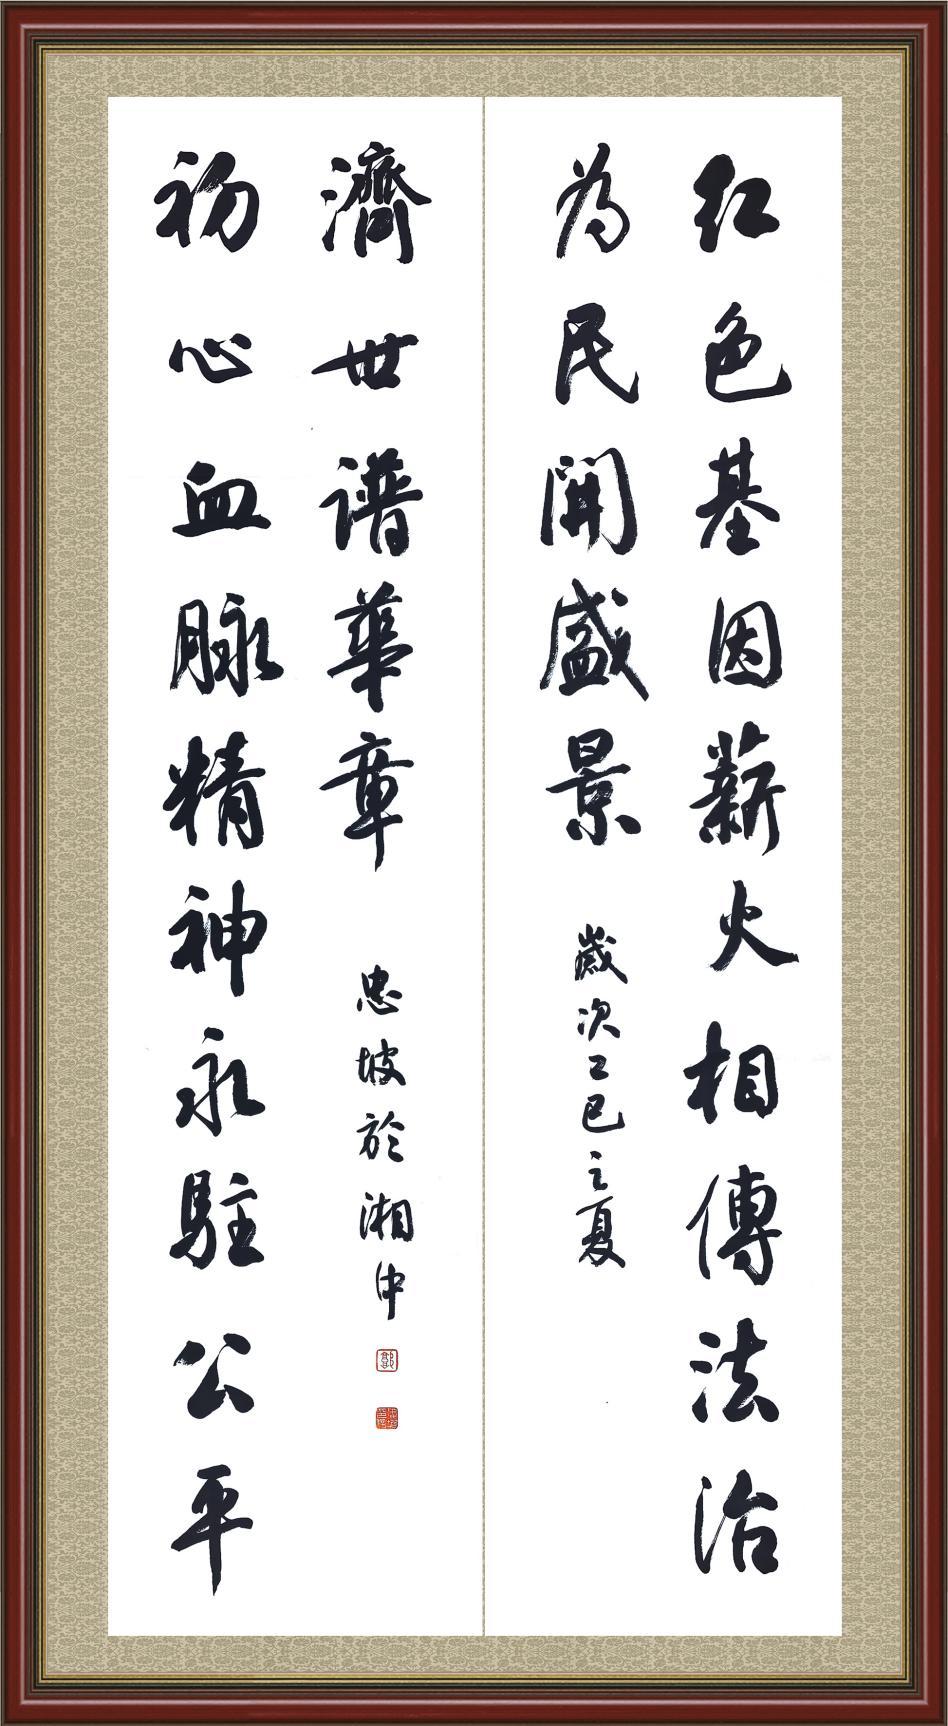 红色基因薪火相傳法治
为民開盛景
歲次乙巳之夏
初心血脉精神永駐公平
濟世谱華章
忠坡於湘中